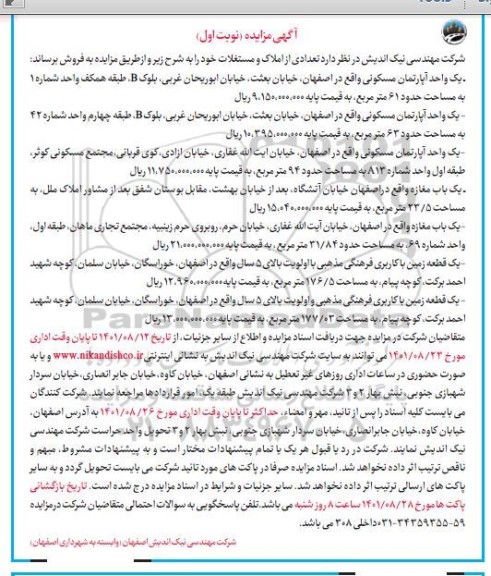 آگهی مزایده (نوبت اول)
شرکت مهندسی نیک اندیش در نظر دارد تعدادی از املاک و مستغلات خود را به شرح زیر و ازطریق مزایده به فروش برساند:
-یک واحد آپارتمان مسکونی واقع در اصفهان، خیابان بعثت، خیابان ابوریحان غربی، بلوک B، طبقه همکف واحد شماره ۱
به مساحت حدود ۶۱ متر مربع، به قیمت پایه ۹،۱۵۰،۰۰۰،۰۰۰ ریال
-یک واحد آپارتمان مسکونی واقع در اصفهان، خیابان بعثت، خیابان ابوریحان غربی، بلوک B، طبقه چهارم واحد شماره ۴۲
به مساحت حدود ۶۳ متر مربع، به قیمت پایه ۱۰،۳۹۵،۰۰۰،۰۰۰ ریال
-یک واحد آپارتمان مسکونی واقع در اصفهان، خیابان ایت الله غفاری، خیابان ازادی، کوی قربانی، مجتمع مسکونی کوثر،
طبقه اول واحد شماره ۸۱۳ به مساحت حدود ۹۴ متر مربع، به قیمت پایه ۱۱،۷۵۰،۰۰۰،۰۰۰ ریال
-یک باب مغازه واقع دراصفهان خیابان آتشگاه، بعد از خیابان بهشت، مقابل بوستان شفق بعد از مشاور املاک ملل، به
مساحت ۲۳/۵ متر مربع، به قیمت پایه ۱۵،۰۴۰،۰۰۰،۰۰۰ ریال
-یک باب مغازه واقع در اصفهان، خیابان آیت الله غفاری، خیابان حرم، روبروی حرم زینبیه، مجتمع تجاری ماهان، طبقه اول،
واحد شماره ۶۹، به مساحت حدود ۳۱/۸۴ متر مربع، به قیمت پایه ۲۱،۰۰۰،۰۰۰،۰۰۰ ریال
-یک قطعه زمین با کاربری فرهنگی مذهبی با اولویت بالای ۵ سال واقع در اصفهان، خوراسگان، خیابان سلمان، کوچه شهید
احمد برکت، کوچه پیام، به مساحت ۱۷۶/۵ متر مربع، به قیمت پایه ۱۲،۹۶۰،۰۰۰،۰۰۰ ریال
-یک قطعه زمین با کاربری فرهنگی مذهبی و اولویت بالای ۵ سال واقع در اصفهان، خوراسگان، خیابان سلمان، کوچه شهید
احمد برکت، کوچه پیام، به مساحت ۱۷۷/۰۳ متر مربع، به قیمت پایه ۱۳،۰۰۰،۰۰۰،۰۰۰ ریال
متقاضیان شرکت در مزایده جهت دریافت اسناد مزایده و اطلاع از سایر جزئیات، از تاریخ ۱۴۰۱/۰۸/۱۲ تا پایان وقت اداری
مورخ ۱۴۰۱/۰۸/۲۳ می توانند به سایت شرکت مهندسی نیک اندیش به نشانی اینترنتی www.nikandishco.ir و یا به
صورت حضوری در ساعات اداری روزهای غیر تعطیل به نشانی اصفهان، خیابان کاوه، خیابان جابر انصاری، خیابان سردار
شهبازی جنوبی، نبش بهار ۲ و ۳ شرکت مهندسی نیک اندیش طبقه یک، امور قراردادها مراجعه نمایند. شرکت کنندگان
می بایست کلیه اسناد را پس از تائید، مهر و امضاء، حداکثر تا پایان وقت اداری مورخ ۱۴۰۱/۰۸/۲۶ به آدرس اصفهان،
خیابان کاوه، خیابان جابرانصاری، خیابان سردار شهبازی جنوبی، نبش بهار ۲ و ۳ تحویل واحد حراست شرکت مهندسی
نیک اندیش نمایند. شرکت در رد یا قبول هر یک یا تمام پیشنهادات مختار است و به پیشنهادات مشروط، مبهم و
ناقص ترتیب اثر داده نخواهد شد. اسناد مزایده صرفا در پاکت های مورد تائید شرکت می بایست تحویل گردد و به سایر
پاکت های ارسالی ترتیب اثر داده نخواهد شد. سایر جزئیات و شرایط در اسناد مزایده درج شده است. تاریخ بازگشائی
پاکت ها مورخ ۱۴۰۱/۰۸/۲۸ ساعت ۸ روز شنبه می باشد.تلفن پاسخگویی به سوالات احتمالی متقاضیان شرکت درمزایده
۵۹-۳۴۳۵۹۳۵۵-۰۳۱داخلی ۳۰۸ می باشد.
شرکت مهندسی نیک اندیش اصفهان (وابسته به شهرداری اصفهان)